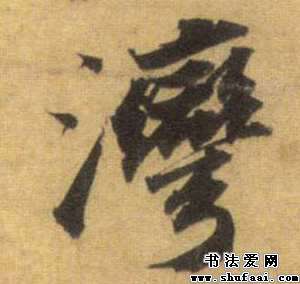 灣
书法爱网
www.shufaai.com